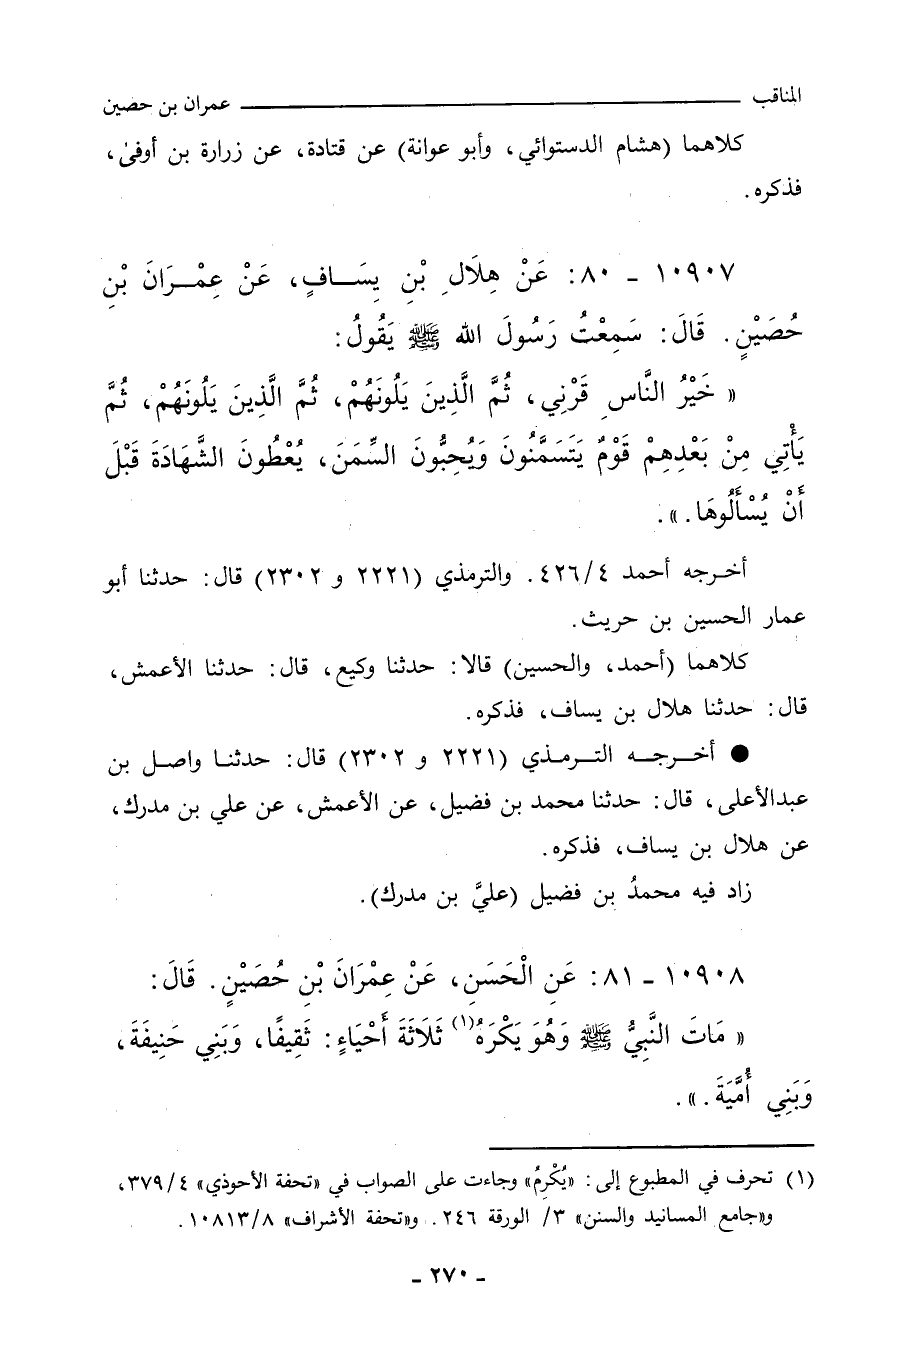 المناقب ــــــــــ عمران بن حصين
كلاهما (هشام الدستوائي، وأبو عوانة) عن قتادة، عن زرارة بن أوفىٰ،
فذكره.
١٠٩٠٧ - ٨٠: عَنْ هِلَالِ بْنِ يِسَافٍ، عَنْ عِمْرَانَ بْنِ
حُصَيْنٍ. قَالَ: سَمِعْتُ رَسُولَ الله ﷺ يَقُولُ:
« خَيْرُ النَّاسِ قَرْنِي، ثُمَّ الَّذِينَ يَلُونَهُمْ، ثُمَّ الَّذِينَ يَلُونَهُمْ، ثُمَّ
يَأْتِي مِنْ بَعْدِهِمْ قَوْمٌ يَتَسَمَّنُونَ وَيُحِبُّونَ السِّمَنَ، يُعْطُونَ الشَّهَادَةَ قَبْلَ
أَنْ يُسْأَلُوهَا.».
أخرجه أحمد ٤٢٦/٤. والترمذي (٢٢٢١ و ٢٣٠٢) قال: حدثنا أبو
عمار الحسين بن حريث.
كلاهما (أحمد، والحسين) قالا: حدثنا وكيع، قال: حدثنا الأعمش،
قال: حدثنا هلال بن يساف، فذكره.
● أخرجه الترمذي (٢٢٢١ و ٢٣٠٢) قال: حدثنا واصل بن
عبدالأعلى، قال: حدثنا محمد بن فضيل، عن الأعمش، عن علي بن مدرك،
عن هلال بن يساف، فذكره.
زاد فيه محمدُ بن فضيل (عليَّ بن مدرك).
١٠٩٠٨ - ٨١: عَنِ الْحَسَنِ، عَنْ عِمْرَانَ بْنِ حُصَيْنٍ. قَالَ:
« مَاتَ النَّبِيُّ ﷺ وَهُوَ يَكْرَهُ(١) ثَلَاثَةَ أَحْيَاءٍ: ثَقِيفًا، وَبَنِي حَنِيفَةَ،
وَبَنِي أُمَيَّةَ.».
(١) تحرف في المطبوع إلى: «يُكْرِمُ» وجاءت على الصواب في «تحفة الأحوذي» ٣٧٩/٤،
و«جامع المسانيد والسنن» ٣/ الورقة ٢٤٦. و«تحفة الأشراف» ١٠٨١٣/٨.
- ٢٧٠ -